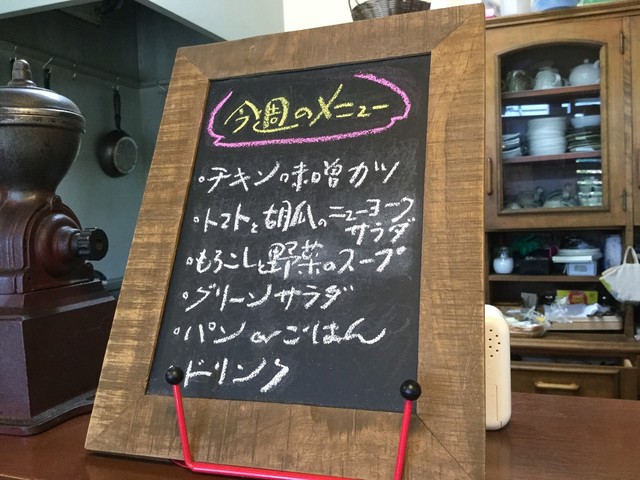 今週のメニュー
・チキン味噌カツ
・トマトと胡瓜のニューヨーク
サラダ
・もろこしと野菜のスープ
・グリーンサラダ
・パン orごはん
・ドリンク